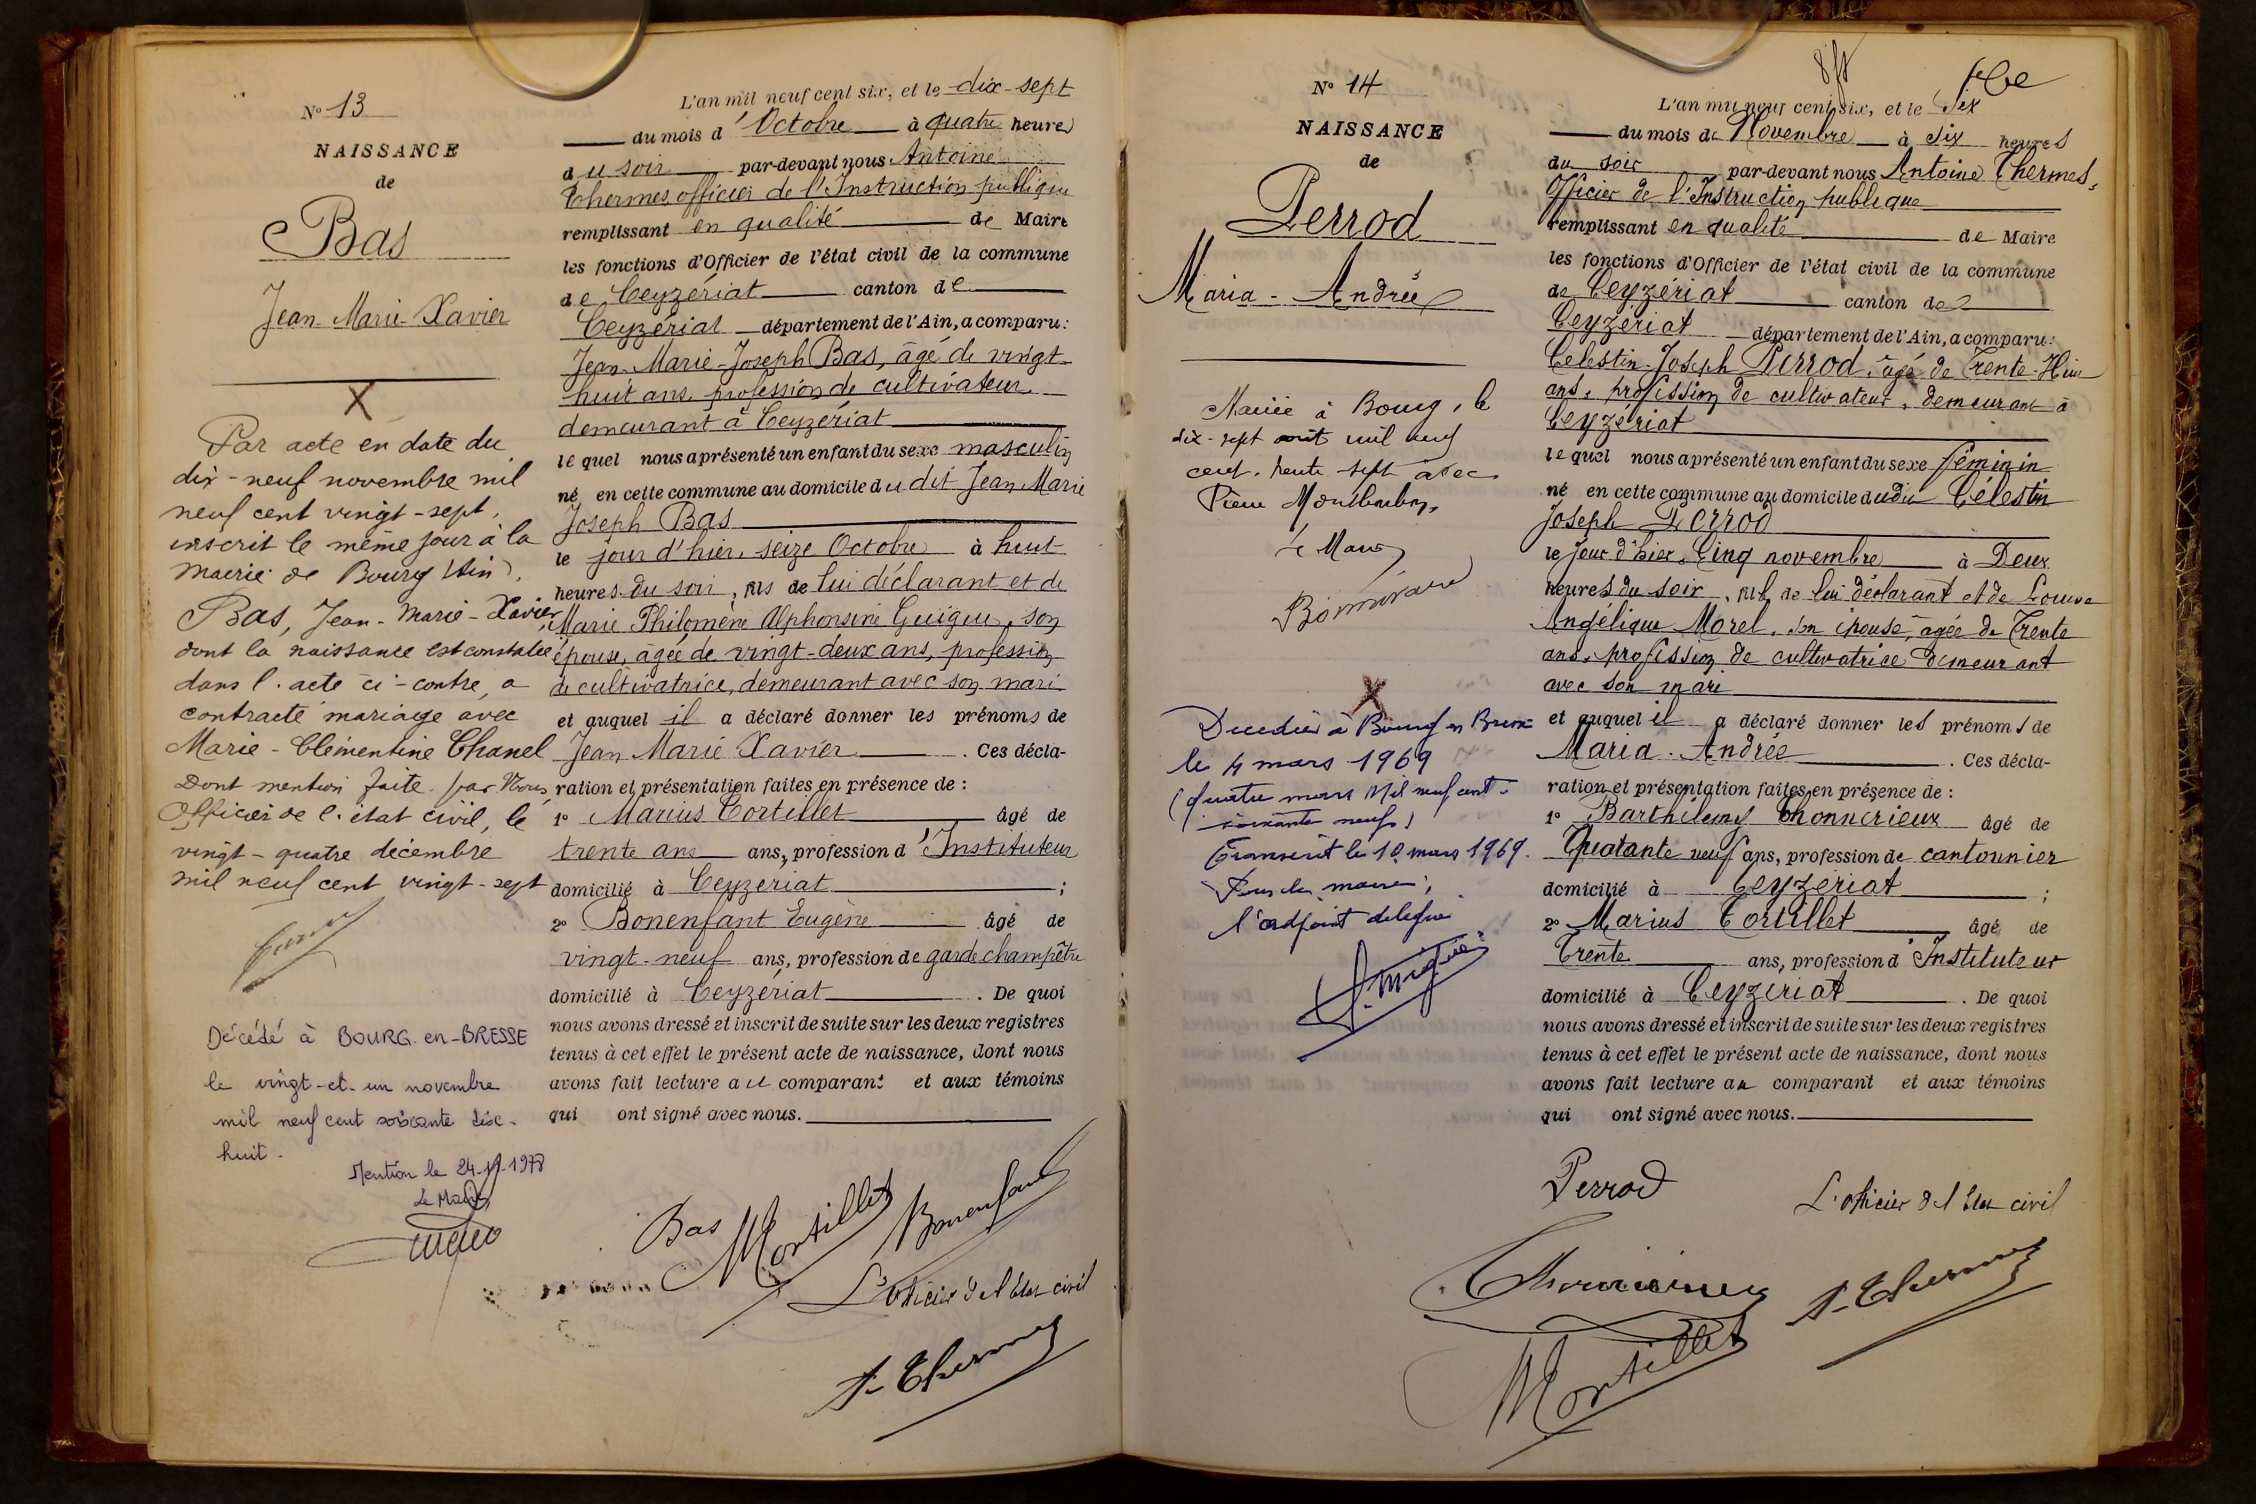 N° 13
NAISSANCE
de
Bas
Jean Marie Xavier
X
Par acte en date du
dix-neuf novembre mil
neuf cent vingt-sept,
inscrit le même jour à la
mairie de Bourg (Ain),
Bas, Jean-Marie-Xavier
dont la naissance est constatée
dans l'acte ci-contre, a
contracté mariage avec
Marie-Clémentine Chanel
Dont mention faite par Nous,
Officier de l'état civil, le
vingt-quatre décembre
mil neuf cent vingt-sept
Décédé à BOURG-en-BRESSE
le vingt-et-un novembre
mil neuf cent soixante dix-
huit.
Mention le 24-11-1978
Le Maire
L'an mil neuf cent six, et le dix-sept
du mois d'Octobre à quatre heures
du soir par-devant nous Antoine
Thermes officier de l'Instruction publique
remplissant en qualité de Maire
les fonctions d'Officier de l'état civil de la commune
de Ceyzériat canton de
Ceyzériat département de l'Ain, a comparu:
Jean Marie-Joseph Bas, âgé de vingt
huit ans, profession de cultivateur
demeurant à Ceyzériat
lequel nous a présenté un enfant du sexe masculin
né en cette commune au domicile du dit Jean Marie
Joseph Bas
le jour d'hier, seize Octobre à huit
heures du soir, fils de lui déclarant et de
Marie Philomène Alphonsine Guigue, son
épouse, âgée de vingt-deux ans, profession
de cultivatrice, demeurant avec son mari
et auquel il a déclaré donner les prénoms de
Jean Marie Xavier. Ces décla-
ration et présentation faites en présence de:
1° Marius Tortillet âgé de
trente ans ans, profession d'Instituteur
domicilié à Ceyzériat;
2° Bonenfant Eugène âgé de
vingt-neuf ans, profession de garde champêtre
domicilié à Ceyzériat. De quoi
nous avons dressé et inscrit de suite sur les deux registres
tenus à cet effet le présent acte de naissance, dont nous
avons fait lecture au comparant et aux témoins
qui ont signé avec nous.
Bas MTortillet Bonenfant
L'officier de l'Etat civil
A. Thermes
N° 14
NAISSANCE
de
Perrod
Maria-Andrée
Mariée à Bourg, le
dix-sept août mil neuf
cent trente sept avec
Pierre
Le Maire
X
Décédée à Bourg en Bresse
le 4 mars 1969
(quatre mars mil neuf cent
soixante neuf)
Transcrit le 10 mars 1969.
Pour le maire,
l'adjoint délégué
L'an mil neuf cent six, et le Six
du mois de Novembre à Six heures
du soir par-devant nous Antoine Thermes,
Officier de l'Instruction publique
remplissant en qualité de Maire
les fonctions d'Officier de l'état civil de la commune
de Ceyzériat canton de
Ceyzériat département de l'Ain, a comparu:
Célestin-Joseph Perrod, âgé de Trente-Huit
ans, profession de cultivateur, demeurant à
Ceyzériat
lequel nous a présenté un enfant du sexe féminin
né en cette commune au domicile dudit Célestin
Joseph Perrod
le jour d'hier, Cinq novembre à Deux
heures du soir, fille de lui déclarant et de Louise
Angélique Morel, son épouse, âgée de Trente
ans, profession de cultivatrice demeurant
avec son mari
et auquel il a déclaré donner les prénoms de
Maria-Andrée. Ces décla-
ration et présentation faites en présence de:
1° Barthélemy Thonnerieux âgé de
Quarante neuf ans, profession de cantonnier
domicilié à Ceyzériat;
2° Marius Tortillet âgé de
Trente ans, profession d'Instituteur
domicilié à Ceyzériat. De quoi
nous avons dressé et inscrit de suite sur les deux registres
tenus à cet effet le présent acte de naissance, dont nous
avons fait lecture au comparant et aux témoins
qui ont signé avec nous.
Perrod
L'officier de l'Etat civil
A. Thermes
MTortillet